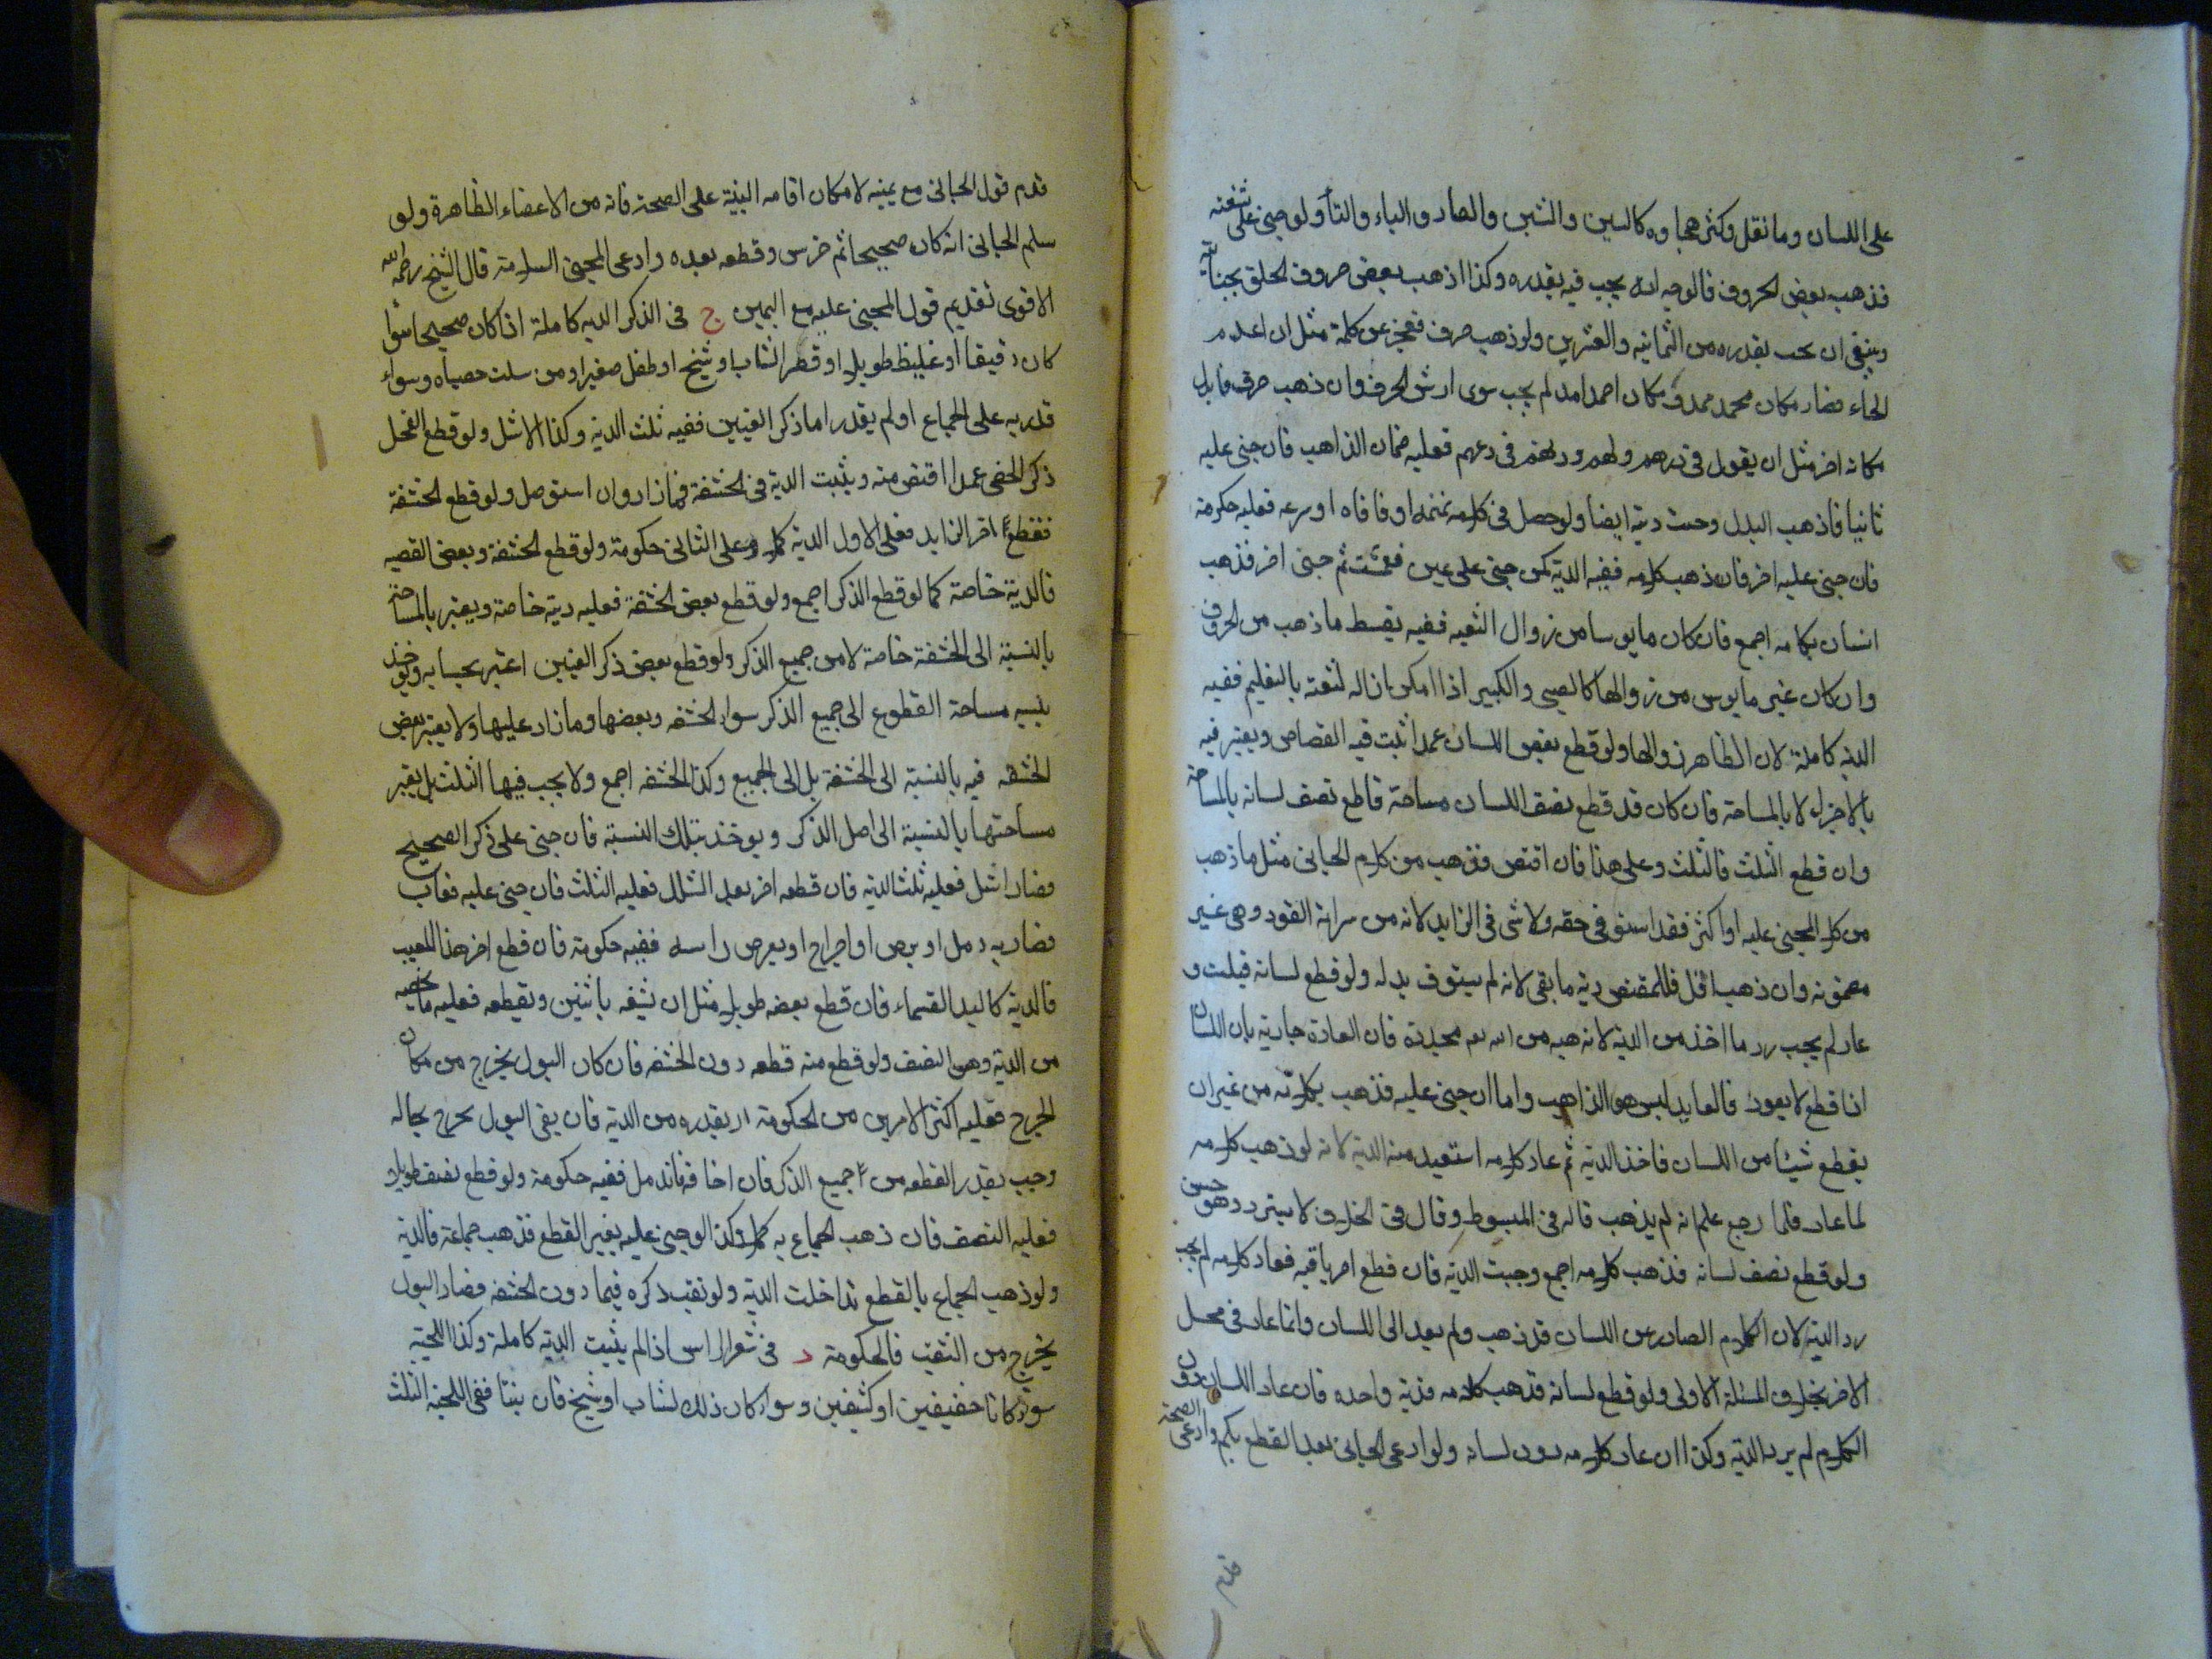 على اللسان وما ثقل وكثر هجاوه كالسين والشين والصاد والباء والتا ولو جنى على شفته
فذهب بعض الحروف فالوجه انه يجب فيه بقدره وكذا اذهب بعض حروف الحلق بجناية
وينبغى ان يجب بقدره من الثمانيه والعشرين ولو ذهب حرف فعجز عن كلمة مثل ان اعدم
الحاء فصار مكان محمد ممد ومكان احمد امد لم يجب سوى ارش الحرف وان ذهب حرف فابدل
مكانه اخر مثل ان يقول فى درهم ولهم ودلهم فى دعهم فعليه ضمان الذاهب فان جنى عليه
ثانيا فاذهب البدل وجبت ديته ايضا ولو حصل فى كلامه تمتمه او فافاه او سرعه فعليه حكومة
فان جنى عليه اخر فان ذهب كلامه ففيه الدية كمن جنى على عين فعمشت ثم جنى اخر فذهب
انسان بكلامه اجمع فان كان مايوسا من زوال اللثغه ففيه بقسط ما ذهب من الحروف
وان كان غير مايوس من زوالها كالصبى والكبير اذا امكن ازاله لثغته بالتعليم ففيه
الديه كاملة لان الظاهر زوالها ولو قطع بعض اللسان عمدا ثبت فيه القصاص ويعتبر فيه
بالاجزاء لا بالمساحة فان كان قد قطع نصف اللسان مساحة قاطع نصف لسانه بالمساحة
وان قطع الثلث فالثلث وعلى هذا فان اقتص فذهب من كلام الجانى مثل ما ذهب
من كلام المجنى عليه او اكثر فقد استوفى حقه ولا شى فى الزايد لانه من سراية القود وهى غير
مضمونه وان ذهب اقل فللمقتص دية ما بقى لانه لم يستوف بدله ولو قطع لسانه فنبت و
عاد لم يجب رد ما اخذ من الدية لانه هبه من الله مجددة فان العادة جارية بان اللسان
اذا قطع لا يعود فالعايد ليس هو الذاهب واما ان جنى عليه فذهب بكلامه من غير ان
يقطع شيئا من اللسان فاخذ الدية ثم عاد كلامه استعيد منه الدية لانه لو ذهب كلامه
لما عاد فلما رجع علم انه لم يذهب قاله فى المبسوط وقال فى الخلاف لا يسترد وهو حسن
ولو قطع نصف لسانه فذهب كلامه اجمع وجبت الدية فان قطع اخر باقيه فعاد كلامه لم يجب
رد الدية لان الكلام الصادر من اللسان قد ذهب ولم يعد الى اللسان وانما عاد فى محل
الاخر بخلاف المسئلة الاولى ولو قطع لسانه فذهب كلامه فدية واحده فان عاد اللسان دون
الكلام لم يرد الدية وكذا ان عاد كلامه بدون لسانه ولو ادعى الجانى بعد القطع بكم وادعى الصحة
قدم
قدم قول الجانى مع يمينه لامكان اقامه البينة على الصحة فانه من الاعضاء الظاهرة ولو
سلم الجانى انه كان صحيحا ثم خرس وقطعه بعده وادعى المجنى السلامة قال الشيخ رحمه الله
الاقوى تقديم قول المجنى عليه مع اليمين ج فى الذكر الديه كاملة اذا كان صحيحا سواء
كان دقيقا او غليظ طويل او قصر الشاب او شيخ او طفل صغير او من سلت خصياه وسواء
قدر به على الجماع او لم يقدر اما ذكر العنين ففيه ثلث الدية وكذا الاشل ولو قطع الفحل
ذكر الخصى عمدا اقتص منه ويثبت الدية فى الحشفة فما زاد وان استوصل ولو قطع الحشفة
فقطع اخر الزايد فعلى الاول الدية كملا وعلى الثانى حكومة ولو قطع الحشفة وبعض القصبه
فالدية خاصة كما لو قطع الذكر اجمع ولو قطع بعض الحشفة فعليه دية خاصة ويعتبر بالمساحة
بالنسبة الى الحشفة خاصة لا من جميع الذكر ولو قطع بعض ذكر العنين اعتبر بحسابه ويوخذ
بنسبه مساحة المقطوع الى جميع الذكر سواء الحشفه وبعضها وما زاد عليها ولا يعتبر بعض
الحشفه فيه بالنسبة الى الحشفة بل الى الجميع وكذا الحشفه اجمع ولا يجب فيها الثلث بل يعتبر
مساحتها بالنسبة الى اصل الذكر ويوخذ بتلك النسبة فان جنى على ذكر الصحيح
فصار اشل فعليه ثلثا الدية فان قطعه اخر بعد الشلل فعليه الثلث فان جنى عليه فعاب
فصار به دمل او برص او اجراح او بعرض راسه ففيه حكومة فان قطع اخر هذا المعيب
فالدية كاليد القسماء فان قطع بعضه طويلا مثل ان يشقه باثنين ويقطعه فعليه ما يخصه
من الدية وهو النصف ولو قطع منه قطعه دون الحشفه فان كان البول يخرج من مكان
الجرح فعليه اكثر الامرين من الحكومة او بقدره من الدية فان بقى البول يخرج بحاله
وجب بقدر القطعه من جميع الذكر فان اجافه فاندمل ففيه حكومة ولو قطع نصفه طويلا
فعليه النصف فان ذهب الجماع به كملا وكذا لو جنى عليه بغير القطع فذهب جماعة فالدية
ولو ذهب الجماع بالقطع تداخلت الدية ولو نقب ذكره فيما دون الحشفه فصار البول
يخرج من الثقب فالحكومة د فى شعر الراس اذا لم ينبت الدية كاملة وكذا اللحية
سواء كانا خفيفين او كثيفين وسواء كان ذلك لشاب او شيخ فان نبتا ففى اللحية الثلث